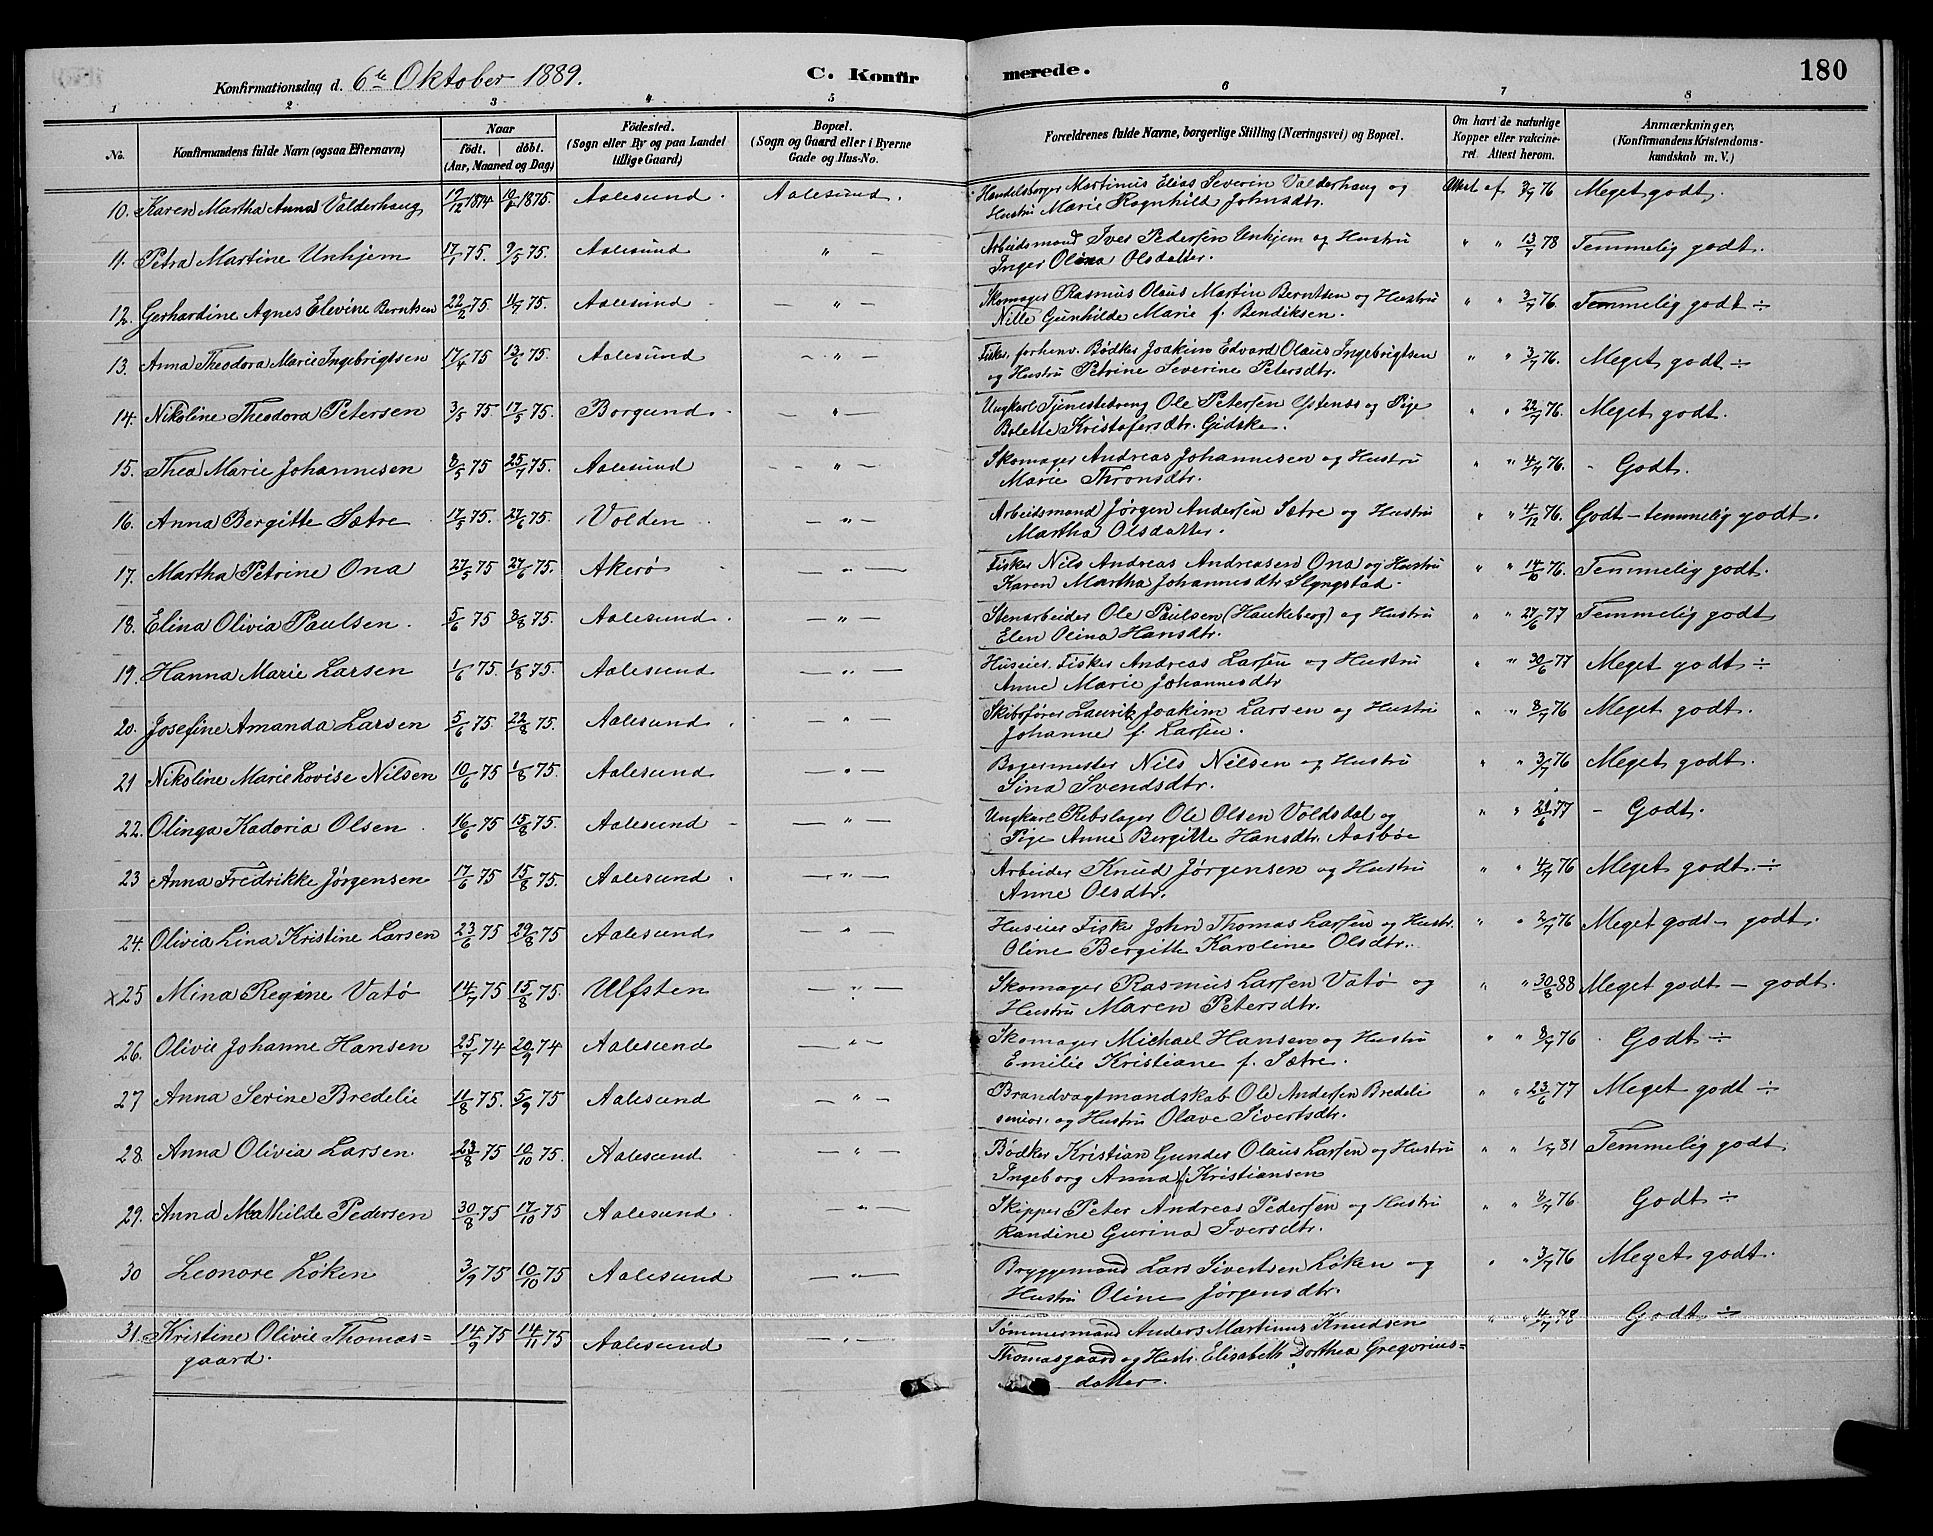 180
Konfirmationsdag d. 6te Oktober 1889. C. Konfir merede.
1 2 3 4 5 6 7 8
No. Konfirmandens fulde Navn (ogsaa Efternavn) Naar født. døbt. (Aar, Maaned og Dag) Fødested. (Sogn eller By og paa Landet tillige Gaard) Bopæl. (Sogn og Gaard eller i Byerne Gade og Hus-No. Forældrenes fulde Navne, borgerlige Stilling (Næringsvei) og Bopæl. Om havt de naturlige Kopper eller vaccineret. Attest herom. Anmærkninger. (Konfirmandens Kristendomskundskab m. V.)
10. Karen Martha Anna Valderhaug 12/12 1874 10/1 1875 Aalesund. Aalesund. Handelsborger Martinus Elias Severin Valderhaug og Attest af 3/7 76 Meget godt.
Hustru Marie Ragnhild Johnsdtr.
11. Petra Martine Unhjem 17/1 75. 9/5 75. Aalesund " Arbeidsmand Iver Pedersen Unhjem og Hustru " " 13/7 78 Temmelig godt.
Inger Olina Olsdatter.
12. Gerhardine Agnes Elevine Berntsen 22/2 75 11/7 75. Aalesund " Skomager Rasmus Olaus Martin Berntsen og Hustru " " 3/7 76. Temmelig godt ÷
Nille Gunhilde Marie f. Bendiksen.
13. Anna Theodora Marie Ingebrigtsen 17/4 75 13/6 75. Aalesund " Fisker, forhenv. Bødker Joakim Edvard Olaus Ingebrigtsen " " 3/7 76. Meget godt ÷
og Hustru Petrine Severine Petersdtr.
14. Nikoline Theodora Petersen 3/5 75. 17/5 75. Borgund " Ungkarl Tjenestedreng Ole Petersen Ystenes og Pige " " 22/7 76. Meget godt.
Bolette Kristofersdtr. Gidske.
15. Thea Marie Johannesen 8/5 75 25/7 75. Aalesund " Skomager Andreas Johannesen og Hustru " " 4/7 76. - Godt.
Marie Thronsdtr.
16. Anna Bergitte Sætre 17/5 75. 27/6 75. Volden " Arbeidsmand Jørgen Andersen Sætre og Hustru " " 4/12 76. Godt - temmelig godt.
Martha Olsdatter.
17. Martha Petrine Ona 27/5 75 27/6 75. Akerø " Fisker Nils Andreas Andreasen Ona og Hustru " " 14/10 76. Temmelig godt.
Karen Martha Johannesdtr Slyngstad.
18. Elina Olivia Paulsen. 5/6 75 3/8 75. Aalesund. " Stenarbeider Ole Paulsen (Haukeberg) og Hustru " " 27/6 77 Temmelig godt
Elen Olina Hansdtr.
19. Hanna Marie Larsen 1/6 75. 1/8 75. Aalesund " Huseier, Fisker Andreas Larsen og Hustru " " 30/6 77 Meget godt ÷
Anne Marie Johannesdtr
20. Josefine Amanda Larsen 5/6 75. 22/8 75. Aalesund. " Skibsfører Lauritz Joakim Larsen og Hustru " " 8/7 76 Meget godt.
Johanne f. Larsen.
21 Nikoline Marie Lovise Nilsen 10/6 75 1/8 75. Aalesund " Bagermester Nils Nilsen og Hustru " " 3/7 76 Meget godt.
Sina Svendsdtr.
22. Olinga Kadoria Olsen 16/6 75 15/8 75. Aalesund " Ungkarl Rebslager Ole Olsen Voldsdal og " " 29/6 77 - Godt.
Pige Anne Bergitte Hansdtr. Aasbøe
23 Anna Fredrikke Jørgensen 17/6 75 15/8 75. Aalesund. " Arbeider Knud Jørgensen og Hustru " " 4/7 76 Meget godt. ÷
Anne Olsdtr.
24. Olivia Lina Kristine Larsen 23/6 75 29/8 75 Aalesund " Huseier Fisker John Thomas Larsen og Hustr. " " 2/7 76 Meget godt - godt.
Oline Bergitte Karoline Olsdtr.
x 25 Mina Regine Vatø 14/7 75 15/8 75. Ulfsten " Skomager Rasmus Larsen Vatø og " " 30/8 88 Meget godt - godt.
Hustru Maren Petersdtr.
26. Olivie Johanne Hansen 25/7 74 20/9 74 Aalesund " Skomager Michael Hansen og Hustru " " 8/7 76 Godt ÷
Emilie Kristiane f. Sætre.
27 Anna Serine Bredelie 11/8 75. 5/9 75 Aalesund " Brandvagtmandskab Ole Andersen Bredeli " " 23/6 77 Meget godt ÷
senior. og Hustru Olave Sivertsdtr.
28. Anna Olivia Larsen. 23/8 75 10/10 75. Aalesund " Bødker Kristian Gunder Olaus Larsen og Hustru " " 1/7 81 Temmelig godt
Ingeborg Anna f. Kristiansen
29. Anna Mathilde Pedersen 30/8 75 17/10 75 Aalesund " Skipper Peter Andreas Pedersen og Hustru " " 8/7 76. Godt ÷
Randine Gurina Iversdtr.
30 Leonore Løken 3/9 75 10/10 75 Aalesund " Bryggemand Lars Sivertsen Løken og " " 3/7 76 Meget godt.
Hustru Oline Jørgensdtr.
31. Kristine Olivie Thomas= 14/9 75 14/11 75 Aalesund " Tømmermand Anders Martinus Knudsen " " 4/7 78 Godt ÷
gaard. Thomasgaard og Hustr. Elisabeth Dorthea Gregorius=
datter.